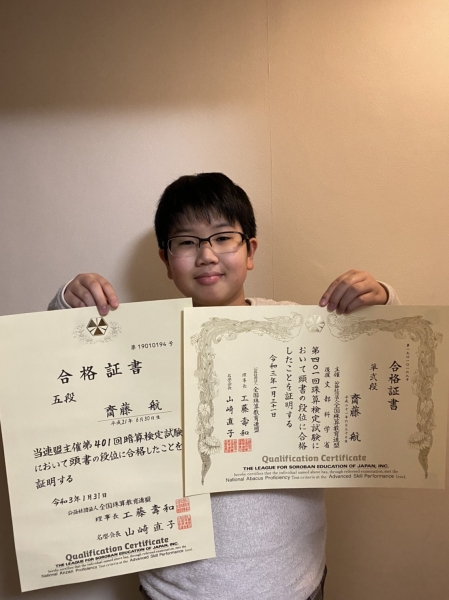 第 19010194 号
合格証書
五段
齋藤 航
平成21年 8月30日生
当連盟主催第401回暗算検定試験
において頭書の段位に合格したことを
証明する
令和3年1月31日
公益社団法人全国珠算教育連盟
理事長 工藤壽和
名誉会長 山崎直子
Qualification Certificate
THE LEAGUE FOR SOROBAN EDUCATION OF JAPAN, INC.
合格証書
準弐段
齋藤 航
主催 公益社団法人全国珠算教育連盟
後援 文部科学省
第四〇一回珠算検定試験に
おいて頭書の段位に合格
したことを証明する
令和三年一月三十一日
公益社団法人全国珠算教育連盟
理事長 工藤壽和
名誉会長 山崎直子
Qualification Certificate
THE LEAGUE FOR SOROBAN EDUCATION OF JAPAN, INC.
hereby certifies that the individual named above has, through referenced examination, met the
National Abacus Proficiency Test criteria at the Advanced Skill Performance level.